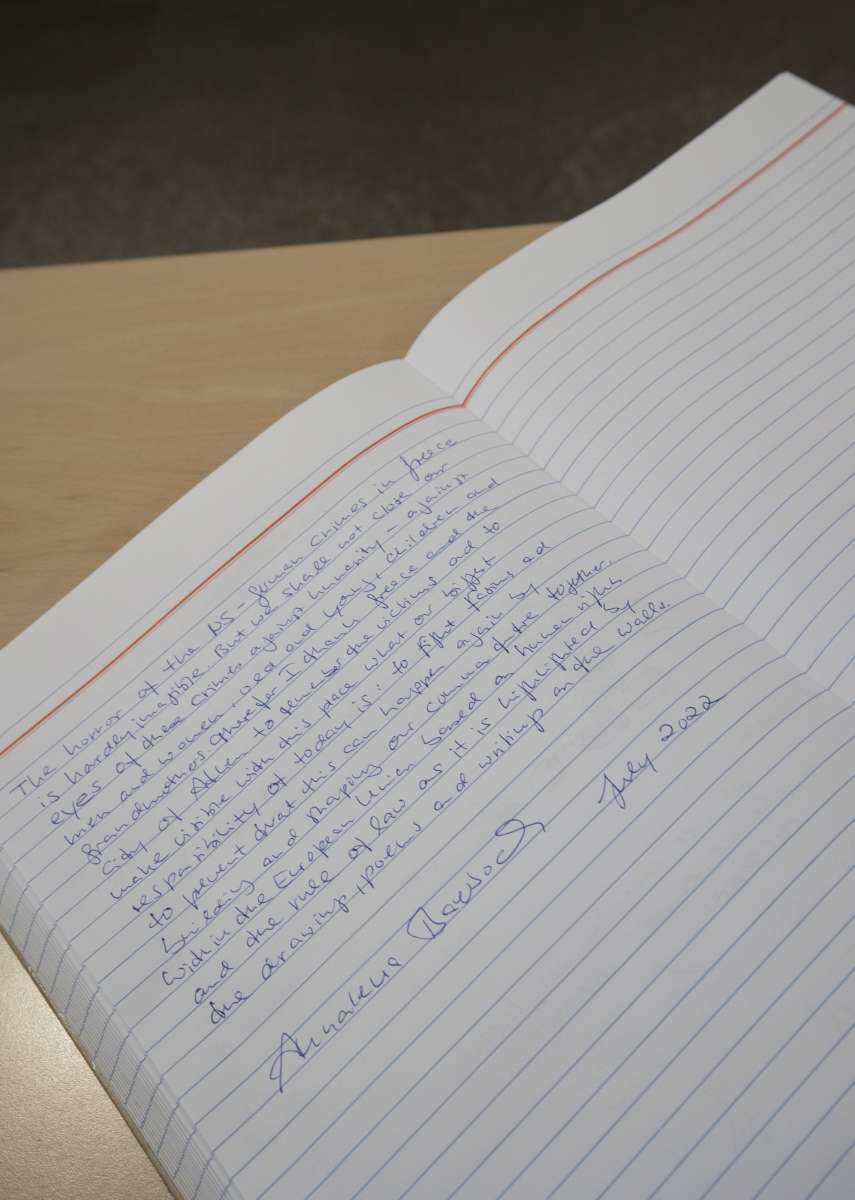 The horror of the NS-German Crimes in Greece
is hardly imagible. But we shall not close our
eyes of these crimes against humanity - against
men and women, old and young, children and
grandmothers. Therefor I thank Greece and the
City of Athen to remember the victims and to
make visible with this place what our biggest
responsibility of today is: to fight fascism and
to prevent that this can happen again by
building and shaping our common future together
within the European Union based on human rights
and the rule of law as it is highlighted by
the drawings, poems and writing on the walls.
Annalena Baerbock July 2022